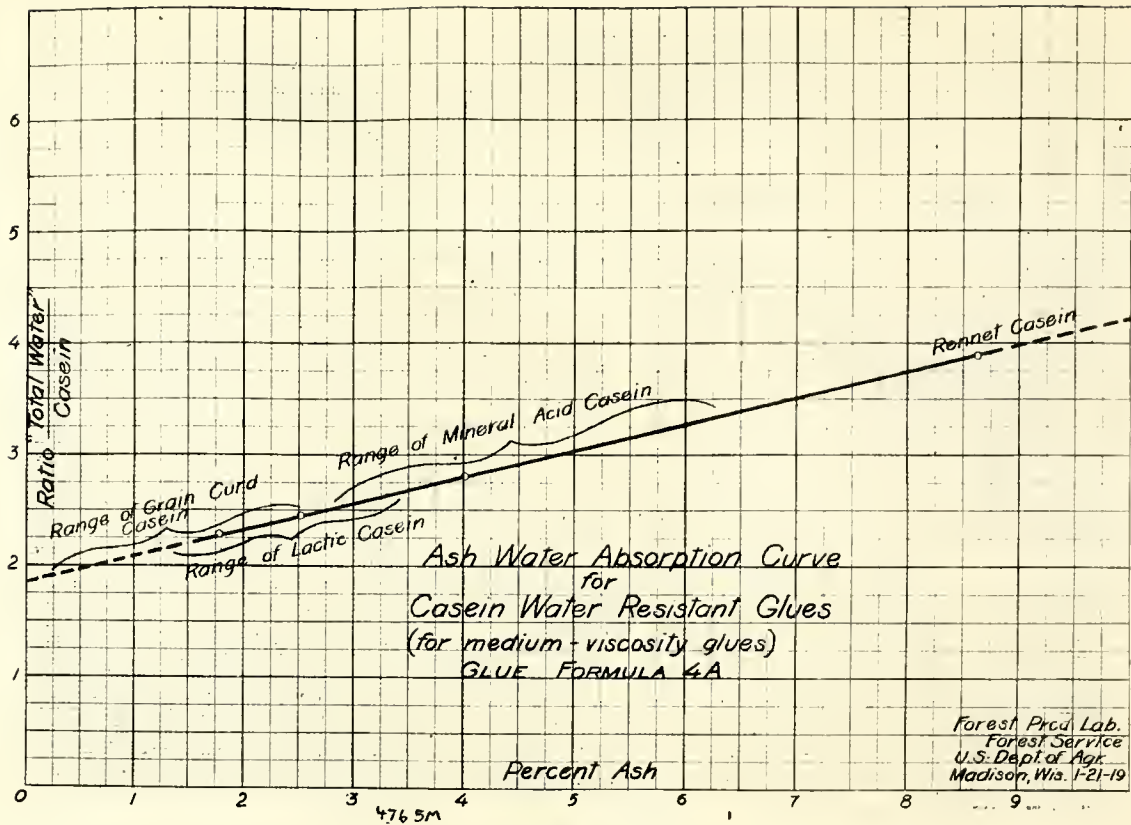 6
5
4
3
2
1
Ratio "Total Water"
Casein
Rennet Casein
Range of Mineral Acid Casein
Range of Grain Curd
Casein
Range of Lactic Casein
Ash Water Absorption Curve
for
Casein Water Resistant Glues
(for medium-viscosity glues)
GLUE FORMULA 4A
Forest Prod Lab.
Forest Service
U.S. Dept of Agr.
Madison, Wis. 1-21-19
Percent Ash
0 1 2 3 4 5 6 7 8 9
4765M